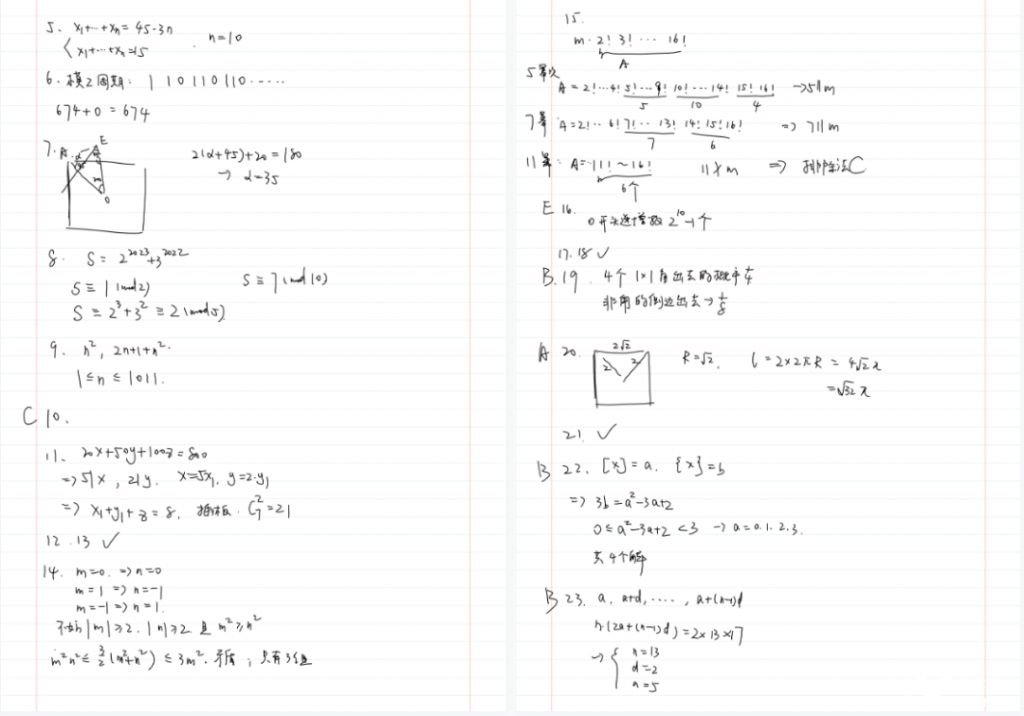 5. x₁+…+xₙ = 45-3n
x₁+…+xₙ=15
n=10
6. 模2周期: 1 1 0 1 1 0 1 1 0 ……
674+0 = 674
7. A E
2(α+45)+20=180
→ α=35
20
O
8. S = 2^2023+3^2022
S ≡ 1 (mod 2)
S ≡ 2³+3² ≡ 2 (mod 5)
S ≡ 7 (mod 10)
9. n², 2n+1+n².
1≤n≤1011.
C 10.
11. 20x+50y+100z=800
=> 5|x, 2|y. x=5x₁, y=2·y₁
=> x₁+y₁+z=8. 插板. C₇²=21
12. 13 ✓
14. m=0. => n=0
m=1 => n=-1
m=-1 => n=1.
不妨|m|≥2. |n|≥2 且 m²≥n²
m²n² ≤ 3/2(m²+n²) ≤ 3m². 矛盾; 只有3组
15.
m·2! 3! … 16!
A
5幂次
A=2!…4! 5!…9! 10!…14! 15! 16! →5||m
5 10 4
7幂 A=2!…6! 7!…13! 14! 15! 16! => 7||m
7 6
11幂: A=11!~16! 11∤m => 排除法C
6个
E 16.
0开头递增数 2¹⁰-1个
17. 18 ✓
B. 19. 4个1×1角出去的概率1/4
非角的侧边出去→1/8
A 20. 2√2
2 2
R=√2. l=2×2πR = 4√2π
=√32π
21. ✓
B 22. [x]=a. {x}=b
=> 3b=a²-3a+2
0≤a²-3a+2<3 → a=0.1.2.3.
共4个解
B 23. a, a+d, …., a+(n-1)d
n(2a+(n-1)d)=2×13×17
→ { n=13
d=2
a=5